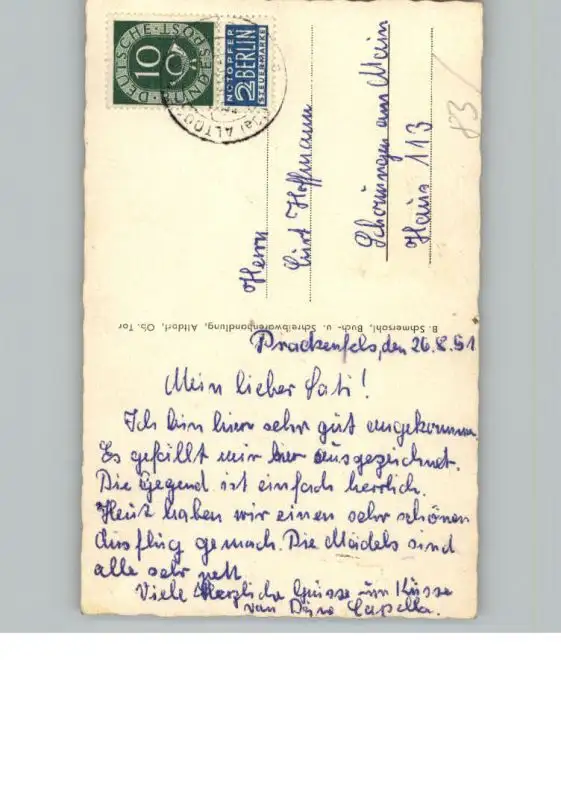 DEUTSCHE BUNDESPOST
10
NOTOPFER
2 BERLIN
STEUERMARKE
ALTDO
Herrn
Curt Hoffmann
Schonungen am Main
Haus 113
83
B. Schmersahl, Buch- u. Schreibwarenhandlung, Altdorf, Ob. Tor
Prackenfels, den 26.8.51
Mein lieber Pati!
Ich bin hier sehr gut angekommen.
Es gefällt mir hier ausgezeichnet.
Die Gegend ist einfach herrlich.
Heut haben wir einen sehr schönen
Ausflug gemach. Die Mädels sind
alle sehr nett
Viele Herzliche Grüsse um Küsse
von